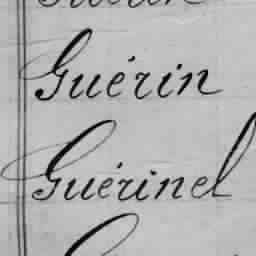 Guérin
Guérinel